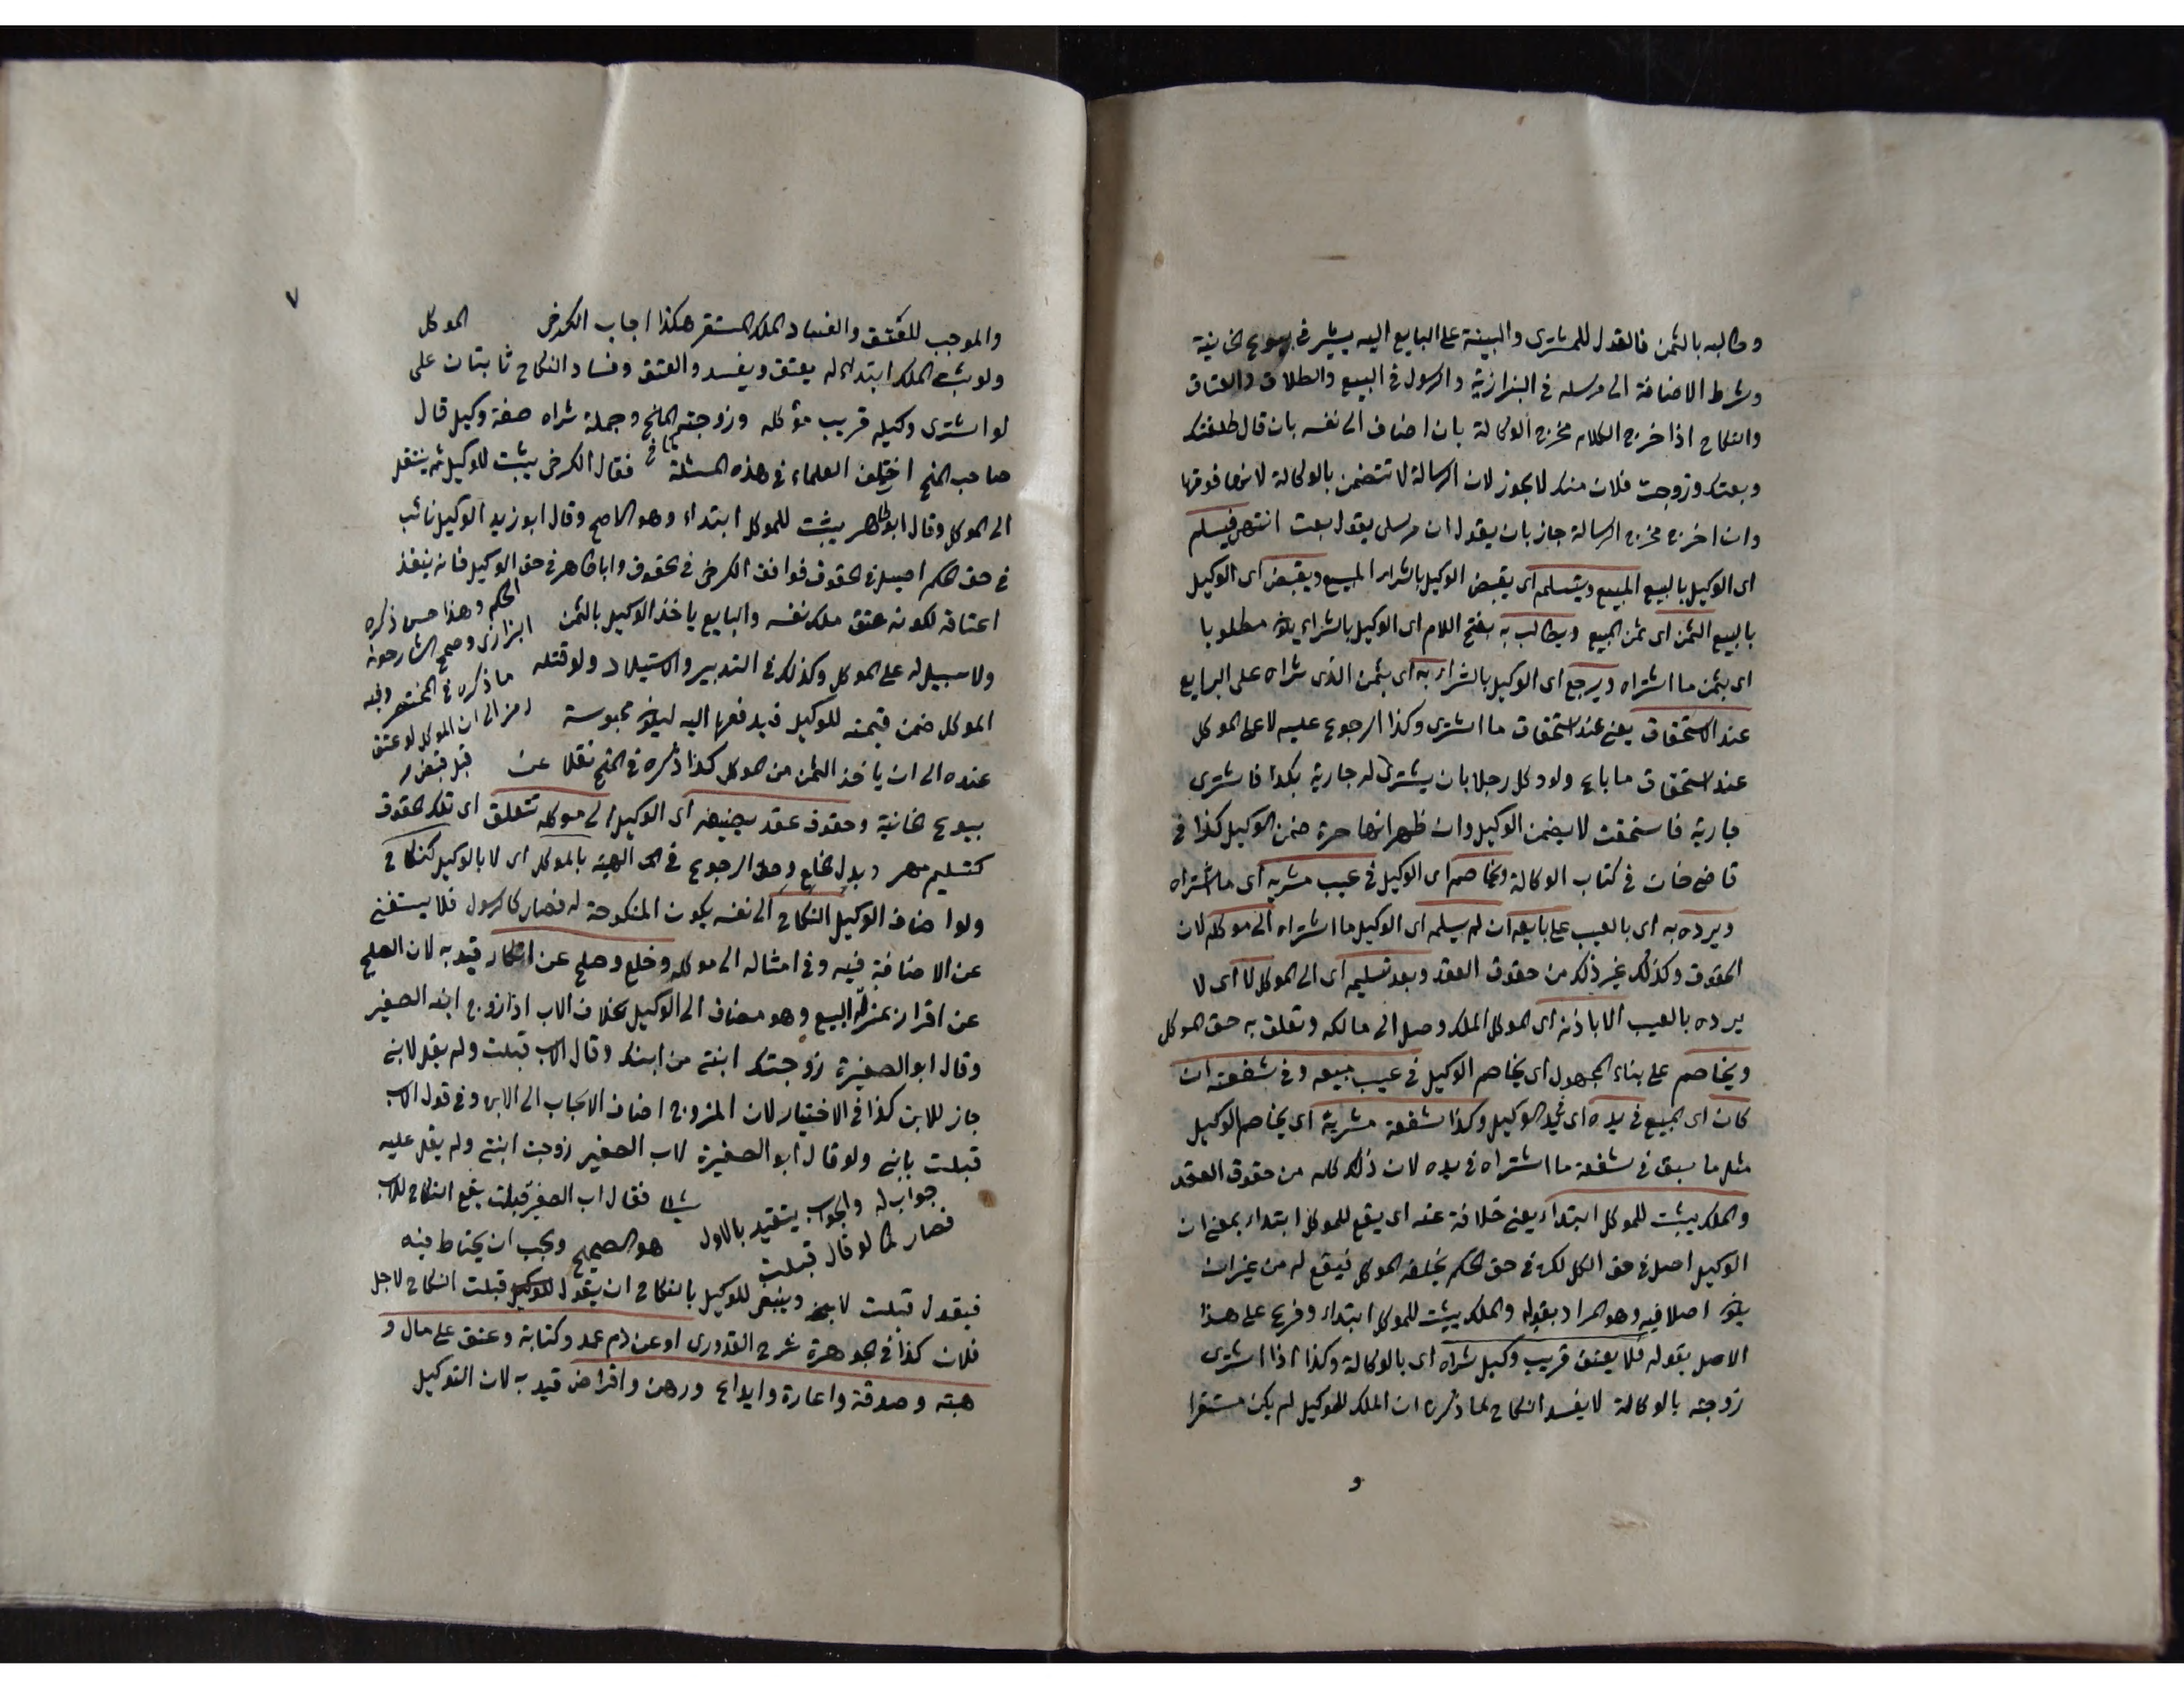 وطالبه بالثمن فالقول للمشترى والبينة على البايع اليه يشير فى بيوع الخانية
وشرط الاضافة الى مرسله فى البزازية والرسول فى البيع والطلاق والعتاق
والنكاح اذا خرج الكلام مخرج الوكالة بان اضاف الى نفسه بان قال طلقتك
وبعتك وزوجت فلان منك لا يجوز لان الرسالة لا تتضمن بالوكالة لانها فوقها
وان اخرج مخرج الرسالة جاز بان يقول ان مرسلى يقول بعت انتهى فيسلم
اى الوكيل بالبيع المبيع ويتسلمه اى يقبض الوكيل بالشراء المبيع ويقبض اى الوكيل
بالبيع الثمن اى ثمن المبيع ويطالب به بفتح اللام اى الوكيل بالشراء يكون مطلوبا
اى بثمن ما اشتراه ويرجع اى الوكيل بالشراء به اى بثمن الذى شراه على البايع
عند الاستحقاق يعنى عند استحقاق ما اشترى وكذا الرجوع عليه لا على الموكل
عند استحقاق ما باع ولو وكل رجلا بان يشترى له جارية بكذا فاشترى
جارية فاستحقت لا يضمن الوكيل وان ظهر انها حرة ضمن الوكيل كذا فى
قاضى خان فى كتاب الوكالة ويخاصم اى الوكيل فى عيب مشريه اى ما اشتراه
ويرده به اى بالعيب على بايعه ان لم يسلمه اى الوكيل ما اشتراه الى موكله لان
الحقوق وكذلك غير ذلك من حقوق العقد وبعد تسليمه اى الى الموكل لا اى لا
يرده بالعيب الا باذنه اى الموكل الملك وصل الى مالكه وتعلق به حق الموكل
ويخاصم على بناء المجهول اى يخاصم الوكيل فى عيب مبيعه وفى شفعته ان
كان اى المبيع فى يده اى فى يد الوكيل وكذا شفعة مشرية اى يخاصم الوكيل
مثل ما سبق فى شفعة ما اشتراه فى يده لان ذلك كله من حقوق العقد
والملك يثبت للموكل ابتداء يعنى خلافة عنه اى يقع للموكل ابتداء بمعنى ان
الوكيل اصل فى حق الكل لكن فى حق الحكم يخلفه الموكل فيقع له من غير ان
يكون اصلا فيه وهو المراد بقوله والملك يثبت للموكل ابتداء وفرع على هذا
الاصل بقوله فلا يعتق قريب وكيل شراه اى بالوكالة وكذا اذا اشترى
زوجته بالوكالة لا يفسد النكاح لما ذكره ان الملك للوكيل لم يكن مستقرا
و
٧
والموجب للعتق والفساد الملك المستقر هكذا اجاب الكرخى الموكل
ولو يثبت الملك ابتداء له يعتق ويفسد والعتق وفساد النكاح ثابتان على
لو اشترى وكيله قريب موكله وزوجته المنح وجملة شراه صفة وكيل قال
صاحب المنح اختلف العلماء فى هذه المسئلة فقال الكرخى يثبت للوكيل ثم ينتقل
الى الموكل وقال ابو طاهر يثبت للموكل ابتداء وهو الاصح وقال ابو زيد الوكيل نائب
فى حق الحكم اصيل فى الحقوق فوافق الكرخى فى الحقوق وابا طاهر فى حق الوكيل فانه ينفذ
اعتاقه لكونه عتق ملك نفسه والبايع ياخذ الوكيل بالثمن
الحكم وهذا حسن ذكره
البزازى وصحح الشارحون
ولا سبيل له على الموكل وكذلك فى التدبير والاستيلاد ولو قتله
ما ذكره فى المختصر وفيه
الموكل ضمن قيمته للوكيل فيدفعها اليه ليكون محبوسة
رمز الى ان الموكل لو عتق
قبل قبض
عنده الى ان ياخذ الثمن من الموكل كذا ذكره فى المنح نقلا عن
بيوع الخانية وحقوق عقد يضيفه اى الوكيل الى موكله تتعلق اى تلك الحقوق
كتسليم مهر وبدل الخلع وحق الرجوع فى الهبة بالموكل اى لا بالوكيل كنكاح
ولو اضاف الوكيل النكاح الى نفسه يكون المنكوحة له فصار كالرسول فلا يستغنى
عن الاضافة فيه وفى امثاله الى موكله وخلع وصلح عن انكار قيد به لان الصلح
عن اقرار بمنزلة البيع وهو مضاف الى الوكيل بخلاف الاب اذا زوج ابنه الصغير
وقال ابو الصغيرة زوجتك ابنتى من ابنك وقال الاب قبلت ولم يقل لابنى
جاز للابن كذا فى الاختيار لان المزوج اضاف الايجاب الى الابن وفى قول الاب
قبلت بابنى ولو قال ابو الصغيرة لاب الصغير زوجت ابنتى ولم يقل عليه
شيئا فقال اب الصغير قبلت يقع النكاح للاب
جواب له والجواب يتقيد بالاول
فصار كما لو قال قبلت
هو الصحيح ويجب ان يحتاط فيه
فيقول قبلت لابنى وينبغى للوكيل بالنكاح ان يقول قبلت النكاح لاجل
فلان كذا فى الجوهرة شرح القدورى او عن دم عمد وكتابة وعتق على مال و
هبته وصدقة واعارة وايداع ورهن واقراض قيد به لان التوكيل